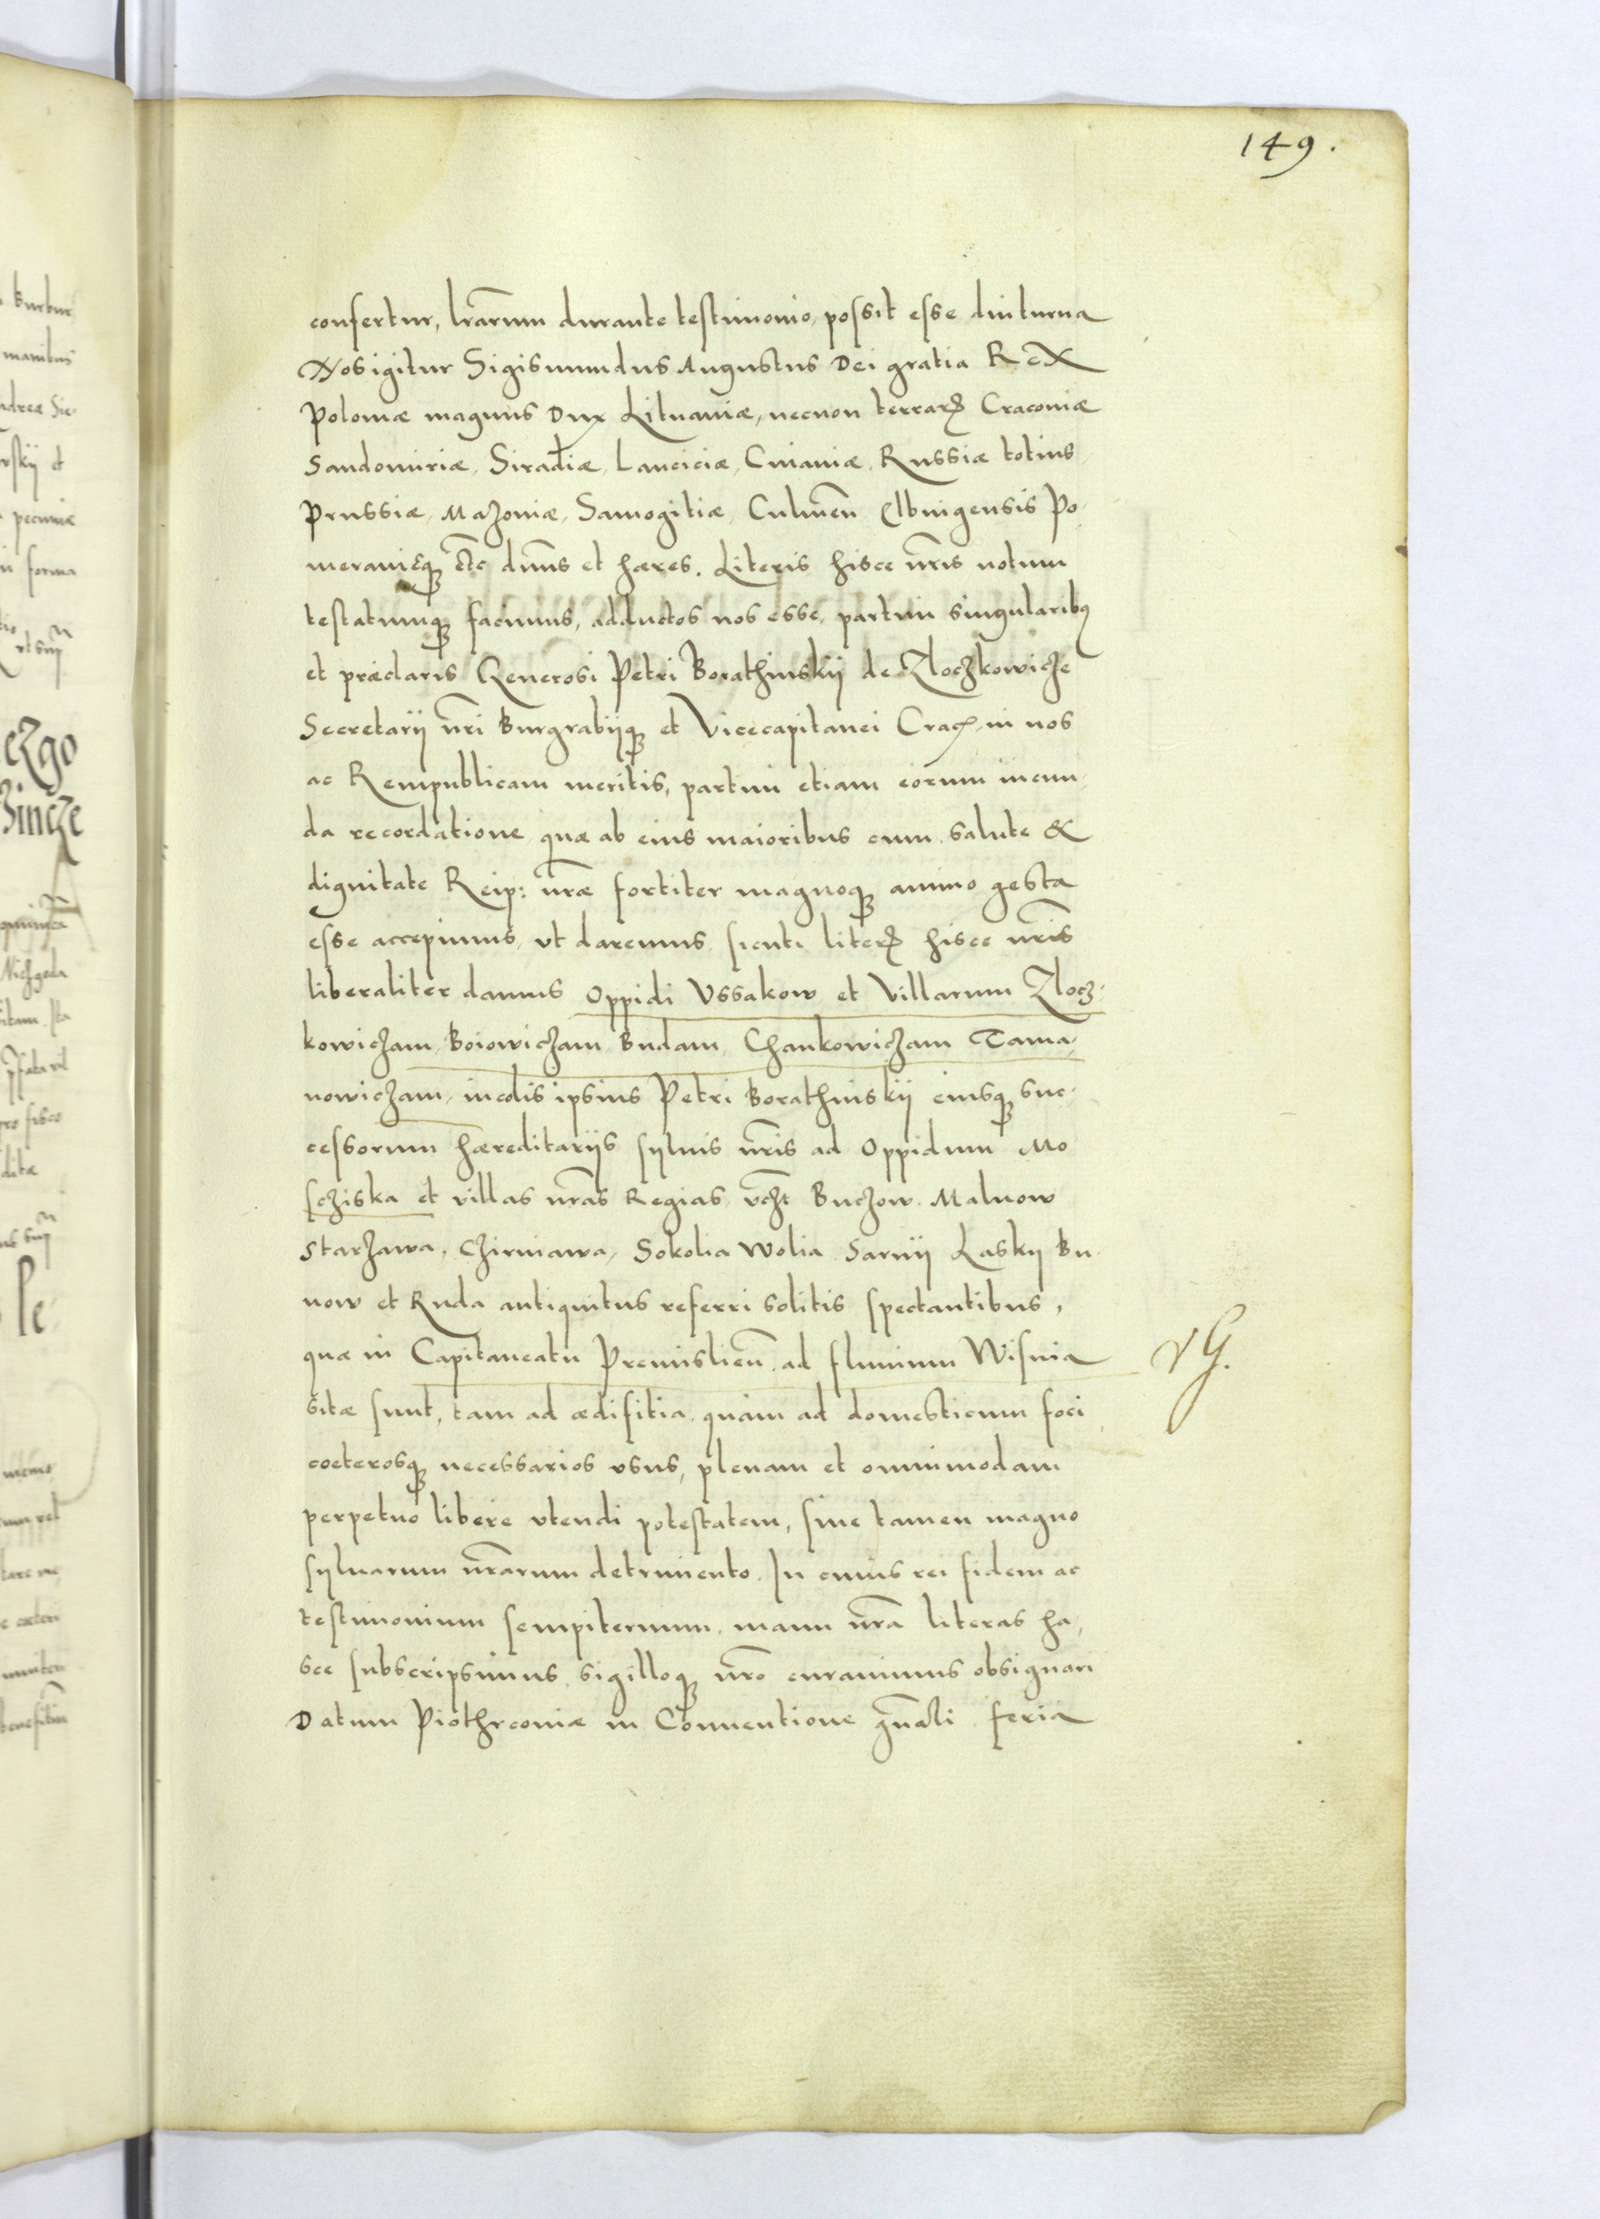 149.
confertur, lrarum durante testimonio, possit esse diuturna
Nos igitur Sigismundus Augustus Dei gratia Rex
Poloniæ magnus Dux Lituaniæ, necnon terrarꝝ Cracoviæ
Sandomiriæ, Siradiæ, Lanciciæ, Cuiaviæ, Russiæ totius
Prussiæ, Mazoviæ, Samogitiæ, Culmen̄ Elbingensis Po-
meraniæq̷ etc dn̄us et hæres. Literis hisce nr̄is notum
testatumq̷ facimus, adductos nos esse, partim singularibꝰ
et præclaris Generosi Petri Borathinskij de Zloczkowicze
Secretarij nr̄i Burgrabijq̷ et Vicecapitanei Crac̄, in nos
ac Rempublicam meritis, partim etiam eorum iucun-
da recordatione quæ ab eius maioribus cum salute &
dignitate Reip: nr̄æ fortiter magnoq̷ animo gesta
esse accepimus, vt daremus sicuti literꝭ hisce nr̄is
liberaliter damus Oppidi Vssakow et Villarum Zlocz-
kowiczam, Boiowiczam Budam, Chankowiczam Tama-
nowiczam, incolis ipsius Petri Borathinskij eiusq̷ suc-
cessorum hæreditarijs syluis nr̄is ad Oppidum Mo
sziska et villas nr̄as Regias vcz̄t Buczow Malnow
Starzawa, Czirniawa, Sokolia Wolia Sarnij Laskij Bu-
now et Ruda antiquitus referri solitis spectantibus,
quæ in Capitaneatu Premislien̄ ad fluuium Wisnia
sitæ sunt, tam ad ædifitia quàm ad domesticum foci
coeterosq̷ necessarios vsus, plenam et omnimodam
perpetuo libere vtendi potestatem, sine tamen magno
syluarum nr̄arum detrimento. In cuius rei fidem ac
testimonium sempiternum manu nr̄a literas ha-
sce subscripsimus sigilloq̷ nr̄o curauimus obsignari
Datum Piothrcoviæ in Conuentione gn̄ali feria